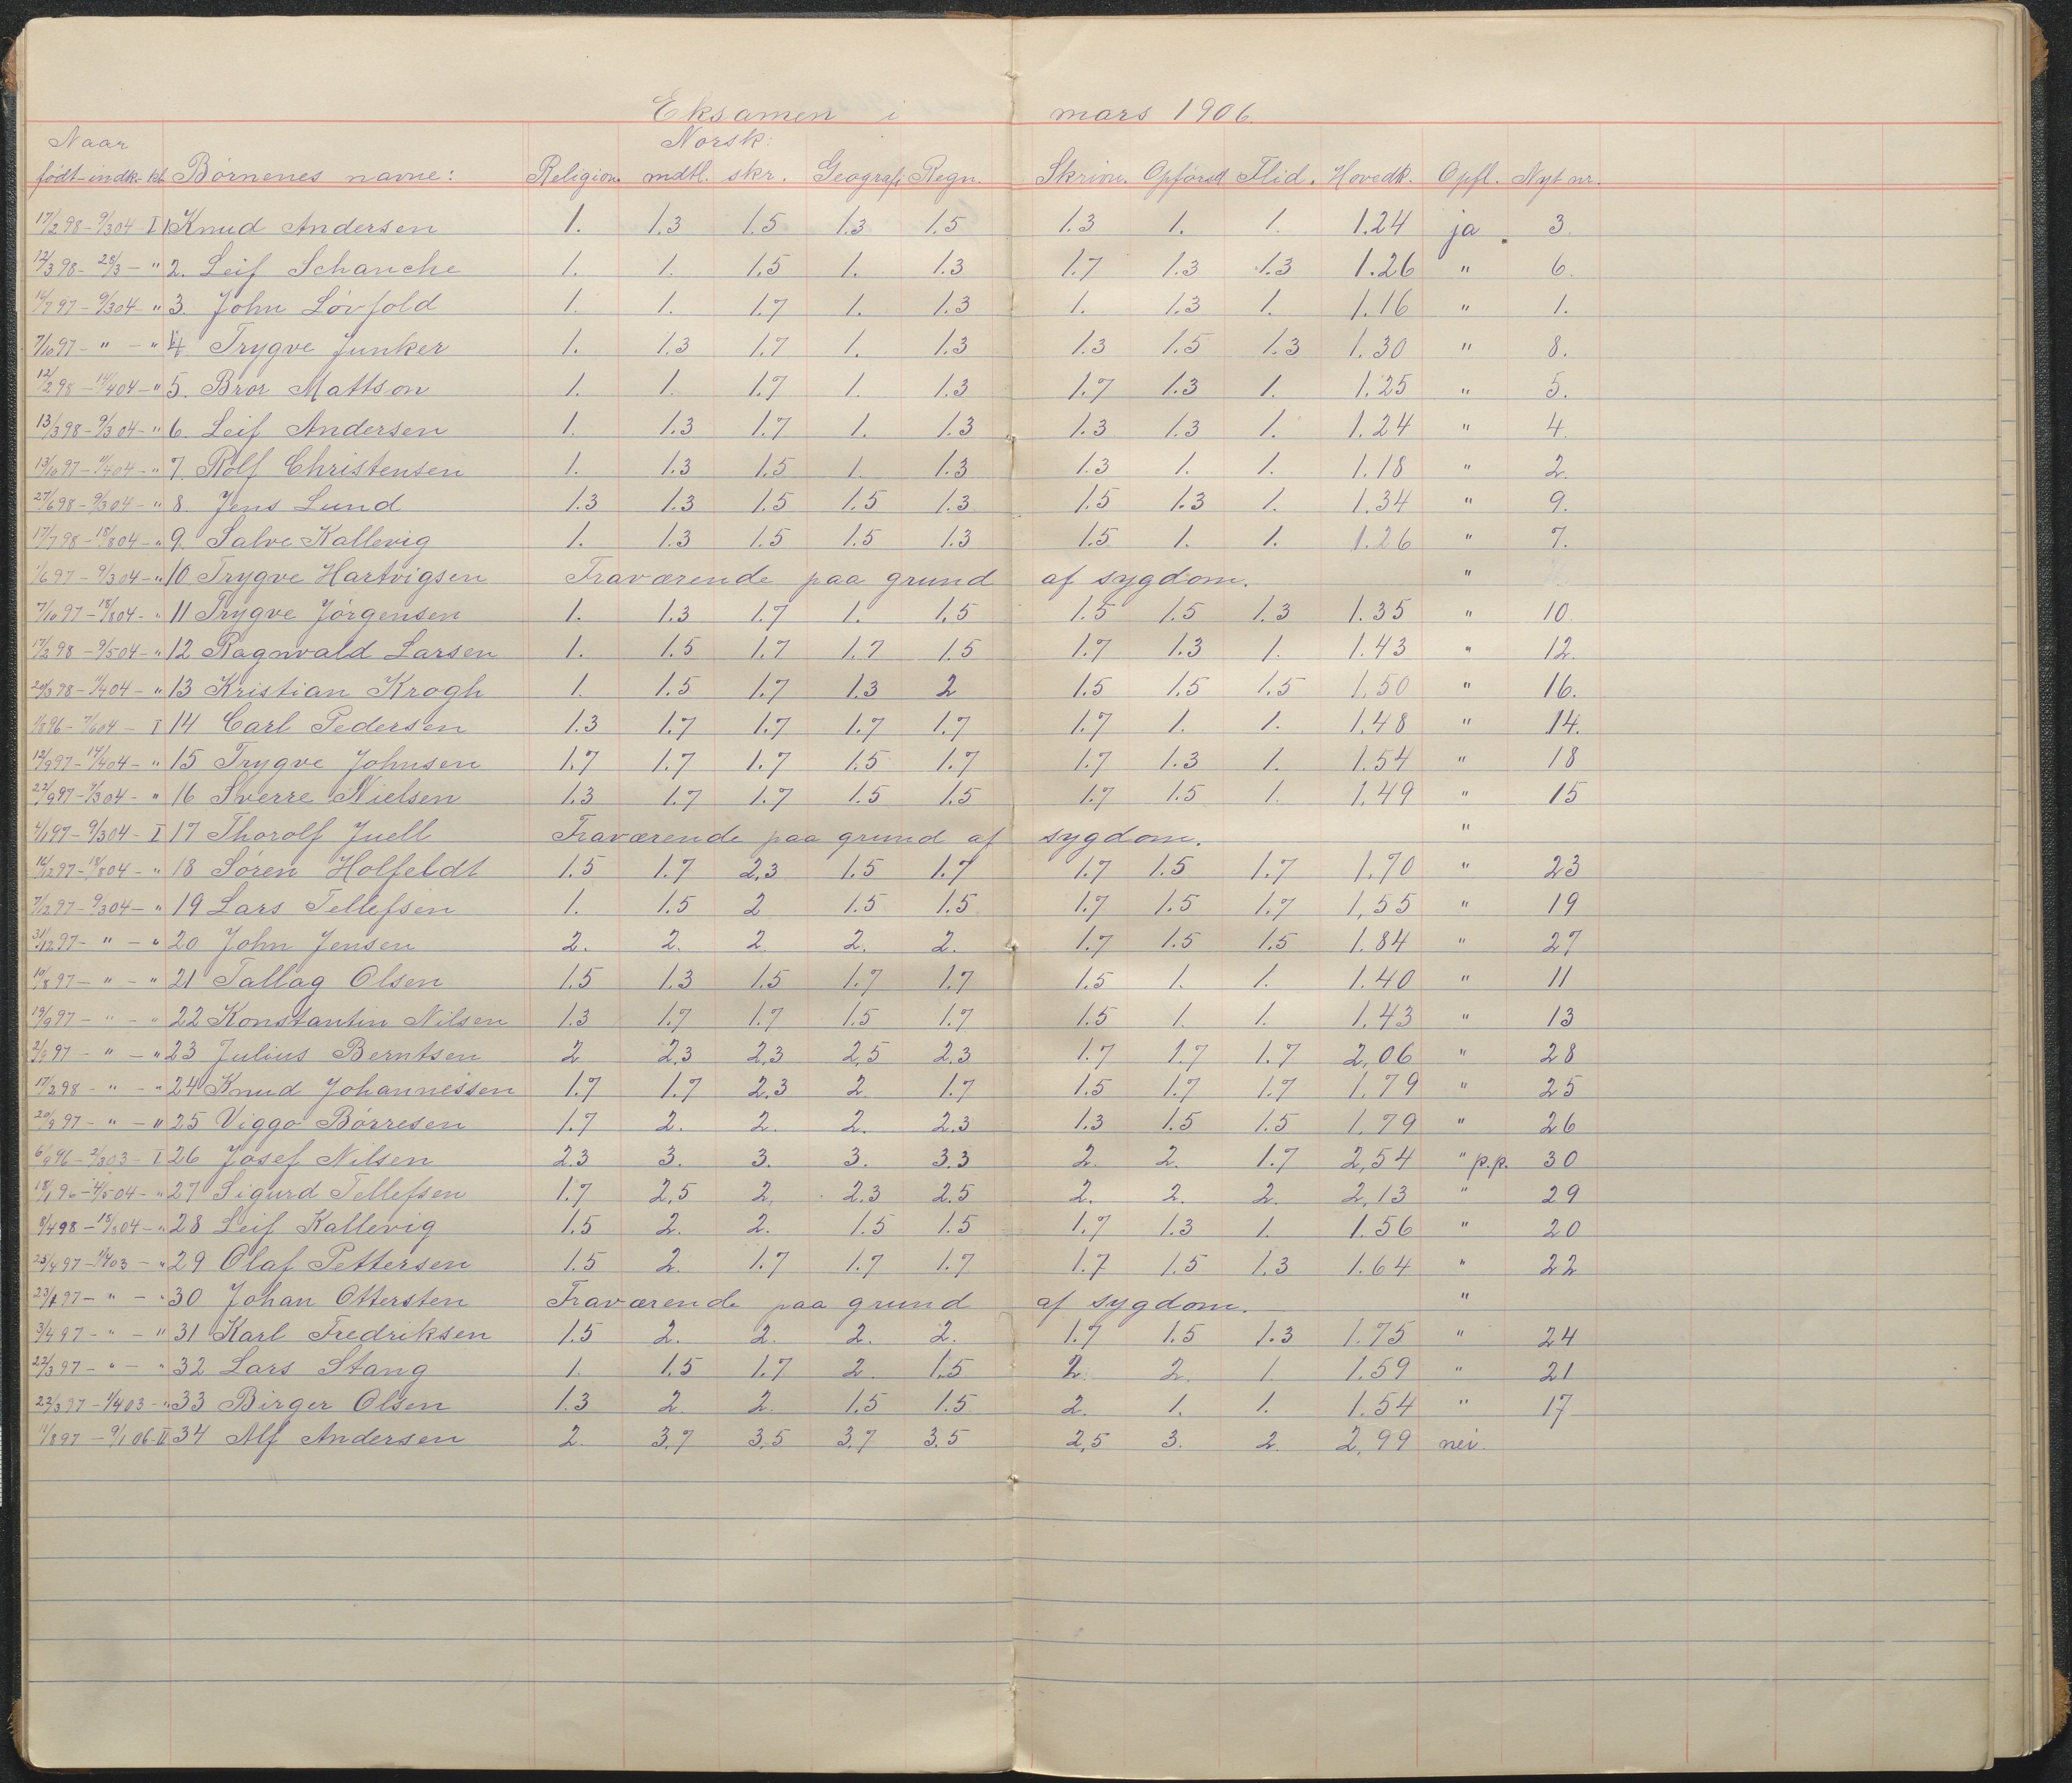 Eksamen i mars 1906.
Naar Norsk:
født-indk.-kl. Børnenes navne: Religion. mdtl. skr. Geografi Regn. Skrivn. Opførsel Flid. Hovedk. Opfl. Nyt nr.
17/2 98 - 9/3 04 I 1 Knud Andersen 1. 1.3 1.5 1.3 1.5 1.3 1. 1. 1.24 ja. 3.
12/3 98 - 28/3 - " 2. Leif Schanche 1. 1. 1.5 1. 1.3 1.7 1.3 1.3 1.26 " 6.
16/7 97 - 9/3 04 - " 3. John Løvfold 1. 1. 1.7 1. 1.3 1. 1.3 1. 1.16 " 1.
7/10 97 - " - " 4 Trygve Junker 1. 1.3 1.7 1. 1.3 1.3 1.5 1.3 1.30 " 8.
12/2 98 - 14/4 04 - " 5. Bror Mattson 1. 1. 1.7 1. 1.3 1.7 1.3 1. 1.25 " 5.
13/3 98 - 9/3 04 - " 6. Leif Andersen 1. 1.3 1.7 1. 1.3 1.3 1.3 1. 1.24 " 4.
13/10 97 - 11/4 04 - " 7. Rolf Christensen 1. 1.3 1.5 1. 1.3 1.3 1. 1. 1.18 " 2.
27/6 98 - 9/3 04 - " 8. Jens Lund 1.3 1.3 1.5 1.5 1.3 1.5 1.3 1. 1.34 " 9.
17/7 98 - 18/8 04 - " 9. Salve Kallevig 1. 1.3 1.5 1.5 1.3 1.5 1. 1. 1.26 " 7.
1/6 97 - 9/3 04 - " 10 Trygve Hartvigsen Fraværende paa grund af sygdom. "
7/10 97 - 18/8 04 - " 11 Trygve Jørgensen 1. 1.3 1.7 1. 1.5 1.5 1.5 1.3 1.35 " 10.
17/2 98 - 9/5 04 - " 12 Ragnvald Larsen 1. 1.5 1.7 1.7 1.5 1.7 1.3 1. 1.43 " 12.
20/3 98 - 11/4 04 - " 13 Kristian Krogh 1. 1.5 1.7 1.3 2 1.5 1.5 1.5 1.50 " 16.
1/8 96 - 7/6 04 - I 14 Carl Pedersen 1.3 1.7 1.7 1.7 1.7 1.7 1. 1. 1.48 " 14.
12/9 97 - 14/4 04 - " 15 Trygve Johnsen 1.7 1.7 1.7 1.5 1.7 1.7 1.3 1. 1.54 " 18
22/9 97 - 9/3 04 - " 16 Sverre Nielsen 1.3 1.7 1.7 1.5 1.5 1.7 1.5 1. 1.49 " 15
4/1 97 - 9/3 04 - I 17 Thorolf Juell Fraværende paa grund af sygdom. "
16/12 97 - 18/8 04 - " 18 Søren Holfeldt 1.5 1.7 2,3 1.5 1.7 1.7 1.5 1.7 1,70 " 23
7/12 97 - 9/3 04 - " 19 Lars Tellefsen 1. 1.5 2 1.5 1.5 1.7 1.5 1.7 1,55 " 19
31/12 97 - " - " 20 John Jensen 2. 2. 2. 2. 2. 1.7 1.5 1.5 1.84 " 27
10/8 97 - " - " 21 Tallag Olsen 1.5 1.3 1.5 1.7 1.7 1.5 1. 1. 1.40 " 11
19/9 97 - " - " 22 Konstantin Nilsen 1.3 1.7 1.7 1.5 1.7 1.5 1. 1. 1,43 " 13
97 - " - " 23 Julius Berntsen 2 2,3 2,3 2,5 2.3 1.7 1.7 1.7 2,06 " 28
17/2 98 - " - " 24 Knud Johannessen 1.7 1.7 2,3 2 1.7 1.5 1.7 1.7 1.79 " 25
20/9 97 - " - " 25 Viggo Børresen 1.7 2. 2. 2. 2.3 1.3 1.5 1.5 1.79 " 26
6/9 96 - 2/3 03 - I 26 Josef Nilsen 2.3 3. 3. 3. 3.3 2. 2. 1.7 2,54 " p.p. 30
18/1 96 - 4/5 04 - " 27 Sigurd Tellefsen 1.7 2,5 2. 2.3 2.5 2. 2. 2. 2,13 " 29
8/4 98 - 18/8 04 - " 28 Leif Kallevig 1.5 2. 2. 1.5 1.5 1.7 1.3 1. 1.56 " 20
25/4 97 - 1/4 03 - " 29 Olaf Pettersen 1.5 2. 1.7 1.7 1.7 1.7 1.5 1.3 1.64 " 22
23/1 97 - " - " 30 Johan Ottersten Fraværende paa grund af sygdom. "
3/4 97 - " - " 31 Karl Fredriksen 1.5 2. 2. 2. 2. 1.7 1.5 1.3 1.75 " 24
22/3 97 - " - " 32 Lars Stang 1. 1.5 1.7 2. 1.5 2. 2. 1 1.59 " 21
22/3 97 - 1/4 03 - " 33 Birger Olsen 1.3 2. 2. 1.5 1.5 2. 1. 1. 1.54 " 17
11/8 97 - 9/1 06 - II 34 Alf Andersen 2. 3,7 3,5 3,7 3.5 2,5 3. 2. 2,99 nei.